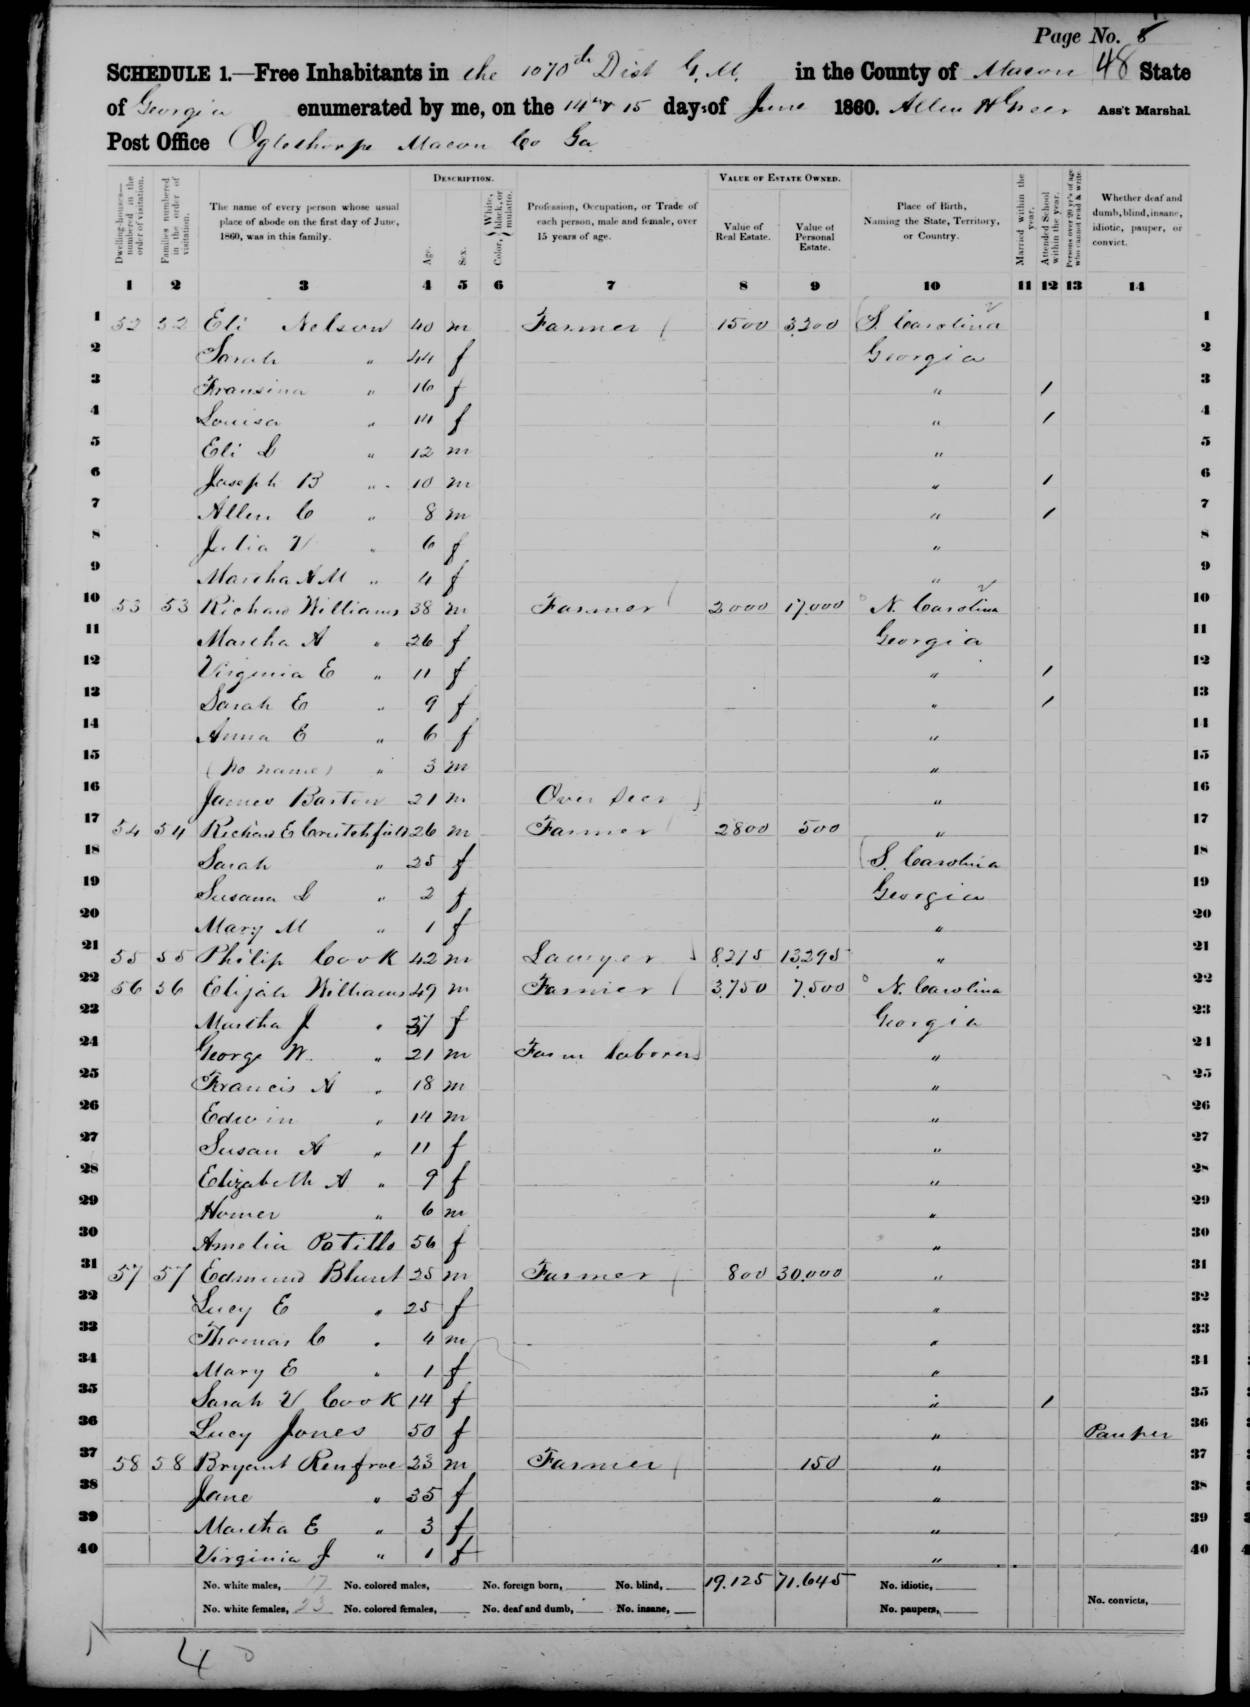 Page No. 8
SCHEDULE 1.—Free Inhabitants in the 1070th Dist G. M. in the County of Macon 48 State
of Georgia enumerated by me, on the 14 & 15 day of June 1860. Allen H Greer Ass't Marshal.
Post Office Oglethorpe Macon Co Ga
DESCRIPTION. VALUE OF ESTATE OWNED.
Dwelling-houses—numbered in the order of visitation. Families numbered in the order of visitation. The name of every person whose usual place of abode on the first day of June, 1860, was in this family. Age. Sex. Color, { White, black, or mulatto. Profession, Occupation, or Trade of each person, male and female, over 15 years of age. Value of Real Estate. Value of Personal Estate. Place of Birth, Naming the State, Territory, or Country. Married within the year. Attended School within the year. Persons over 20 yr's of age who cannot read & write. Whether deaf and dumb, blind, insane, idiotic, pauper, or convict.
1 2 3 4 5 6 7 8 9 10 11 12 13 14
1 52 52 Eli Nelson 40 m Farmer 1500 3,200 S. Carolina 1
2 Sarah " 44 f Georgia 2
3 Fransina " 16 f " / 3
4 Louisa " 14 f " / 4
5 Eli " 12 m " 5
6 Joseph B " 10 m " / 6
7 Allen C " 8 m " / 7
8 Julia V " 6 f " 8
9 Martha A M " 4 f " 9
10 53 53 Richard Williams 38 m Farmer 2000 17,000 N. Carolina 10
11 Martha A " 26 f Georgia 11
12 Virginia E " 11 f " / 12
13 Sarah E " 9 f " / 13
14 Anna E " 6 f " 14
15 (No name) " 3 m " 15
16 James Barton 21 m Over Seer " 16
17 54 54 Richard E Crutchfield 26 m Farmer 2800 500 " 17
18 Sarah " 25 f S. Carolina 18
19 Susana " 2 f Georgia 19
20 Mary M " 1 f " 20
21 55 55 Philip Cook 42 m Lawyer 8,275 13,295 " 21
22 56 56 Elijah Williams 49 m Farmer 3,750 7,500 N. Carolina 22
23 Martha J " 37 f Georgia 23
24 George W. " 21 m Farm laborer " 24
25 Francis A " 18 m " 25
26 Edwin " 14 m " 26
27 Susan A " 11 f " 27
28 Elizabeth A " 9 f " 28
29 Homer " 6 m " 29
30 Amelia Patillo 56 f " 30
31 57 57 Edmund Blunt 25 m Farmer 800 30,000 " 31
32 Lucy E " 25 f " 32
33 Thomas C " 4 m " 33
34 Mary E " 1 f " 34
35 Sarah V Cook 14 f " / 35
36 Lucy Jones 50 f " Pauper 36
37 58 58 Bryant Renfroe 23 m Farmer 150 " 37
38 Jane " 35 f " 38
39 Martha E " 3 f " 39
40 Virginia J " 1 f " 40
No. white males, 17 No. colored males, No. foreign born, No. blind, 19,125 71,645 No. idiotic,
No. white females, 23 No. colored females, No. deaf and dumb, No. insane, No. paupers, No. convicts,
40